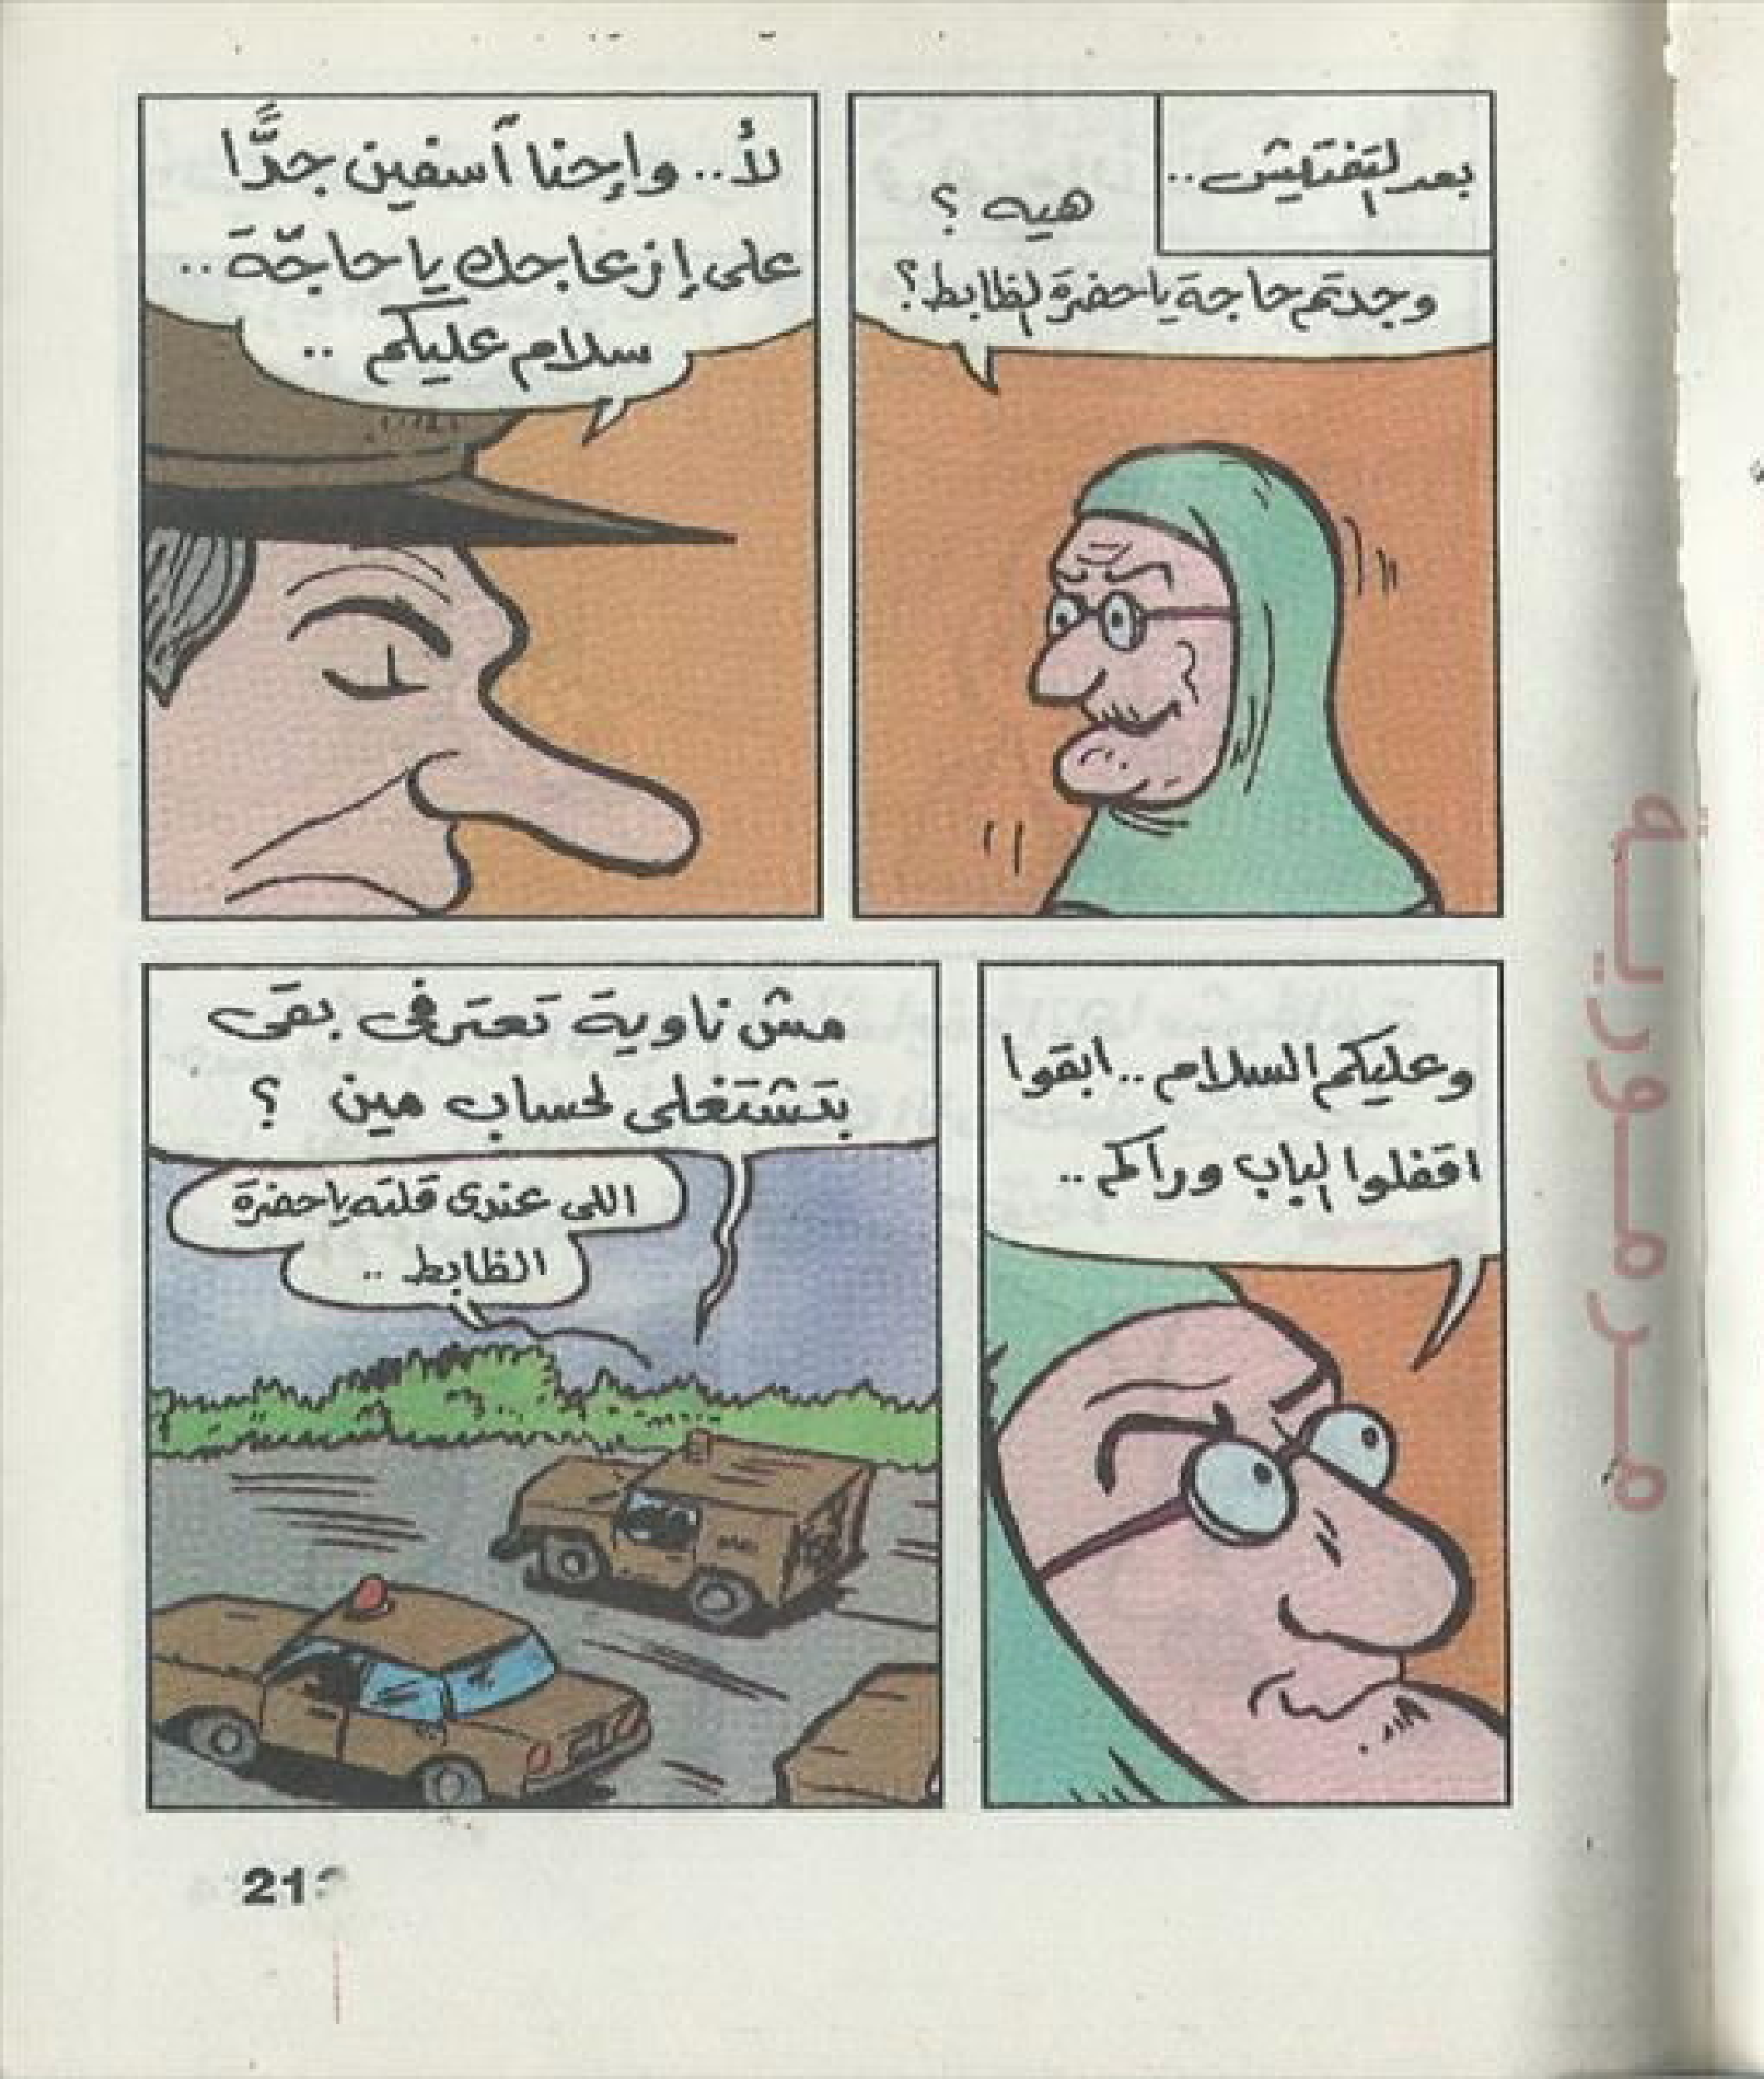 بعد التفتيش..
هيه ؟
وجدتم حاجة يا حضرة الظابط؟
لأ.. وإحنا آسفين جدًّا
على إزعاجك يا حاجّة..
سلام عليكم ..
وعليكم السلام.. ابقوا
اقفلوا الباب وراكم..
مش ناوية تعترفى بقى
بتشتغلى لحساب مين ؟
اللى عندى قلته يا حضرة
الظابط ..
21